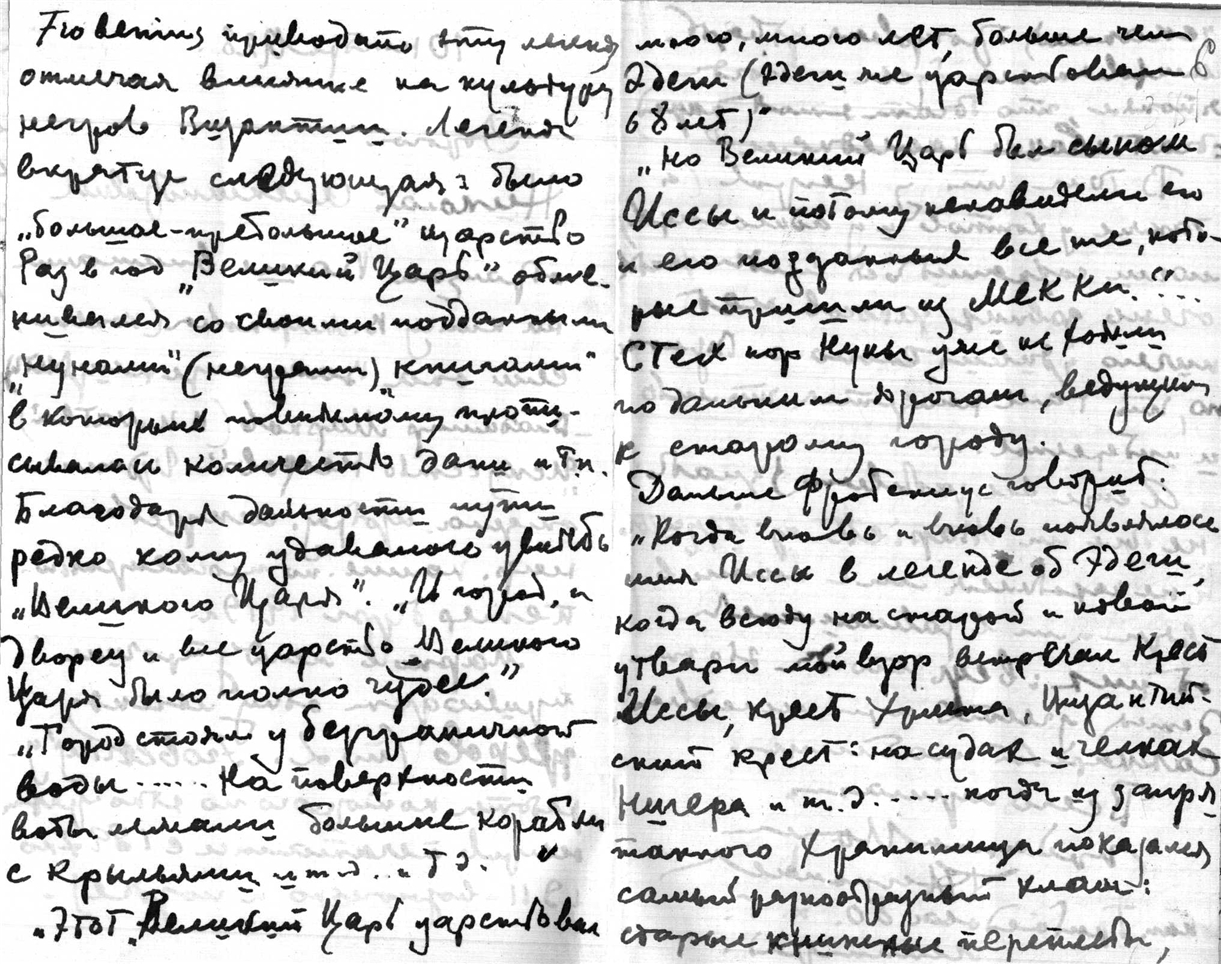 Frobenius приводит эту легенду
отмечая влияние на культуру
негров Византии. Легенда
вкратце следующая: было
„большое-пребольшое" царство
Раз в год „Великий Царь" обме-
нивался со своими подданными
„нунами" (неграми) „книгами"
в которых повидимому пропи-
сывалась количество дани и т.п.
Благодаря дальности пути
редко кому удавалось увидеть
„Великого Царя". „И город, и
дворец и все царство Великого
Царя было полно чудес."
„Город стоял у безграничной
воды ...... На поверхности
воды лежали большие корабли
с крыльями и т.д... и т.д."
„Этот „Великий Царь царствовал
много, много лет, больше чем
Эдеги (Эдеги же царствовал
68 лет)"
„Но Великий Царь был сыном
Иссы и потому ненавидели его
и его подданных все те, кото-
рые пришли из Мекки."...
С тех пор Нуны уже не ходили
по дальним дорогам, ведущим
к старому городу.
Дальше Фробениус говорит:
„Когда вновь и вновь появлялось
имя Иссы в легенде об Эдеги,
когда всюду на старой и новой
утвари мой взор встречал Крест
Иссы, крест Христа, Византий-
ский крест: на судах и челнах
Нигера и т.д...... когда из запря-
танного хранилища показался
самый разнообразный хлам:
старые книжные переплеты,